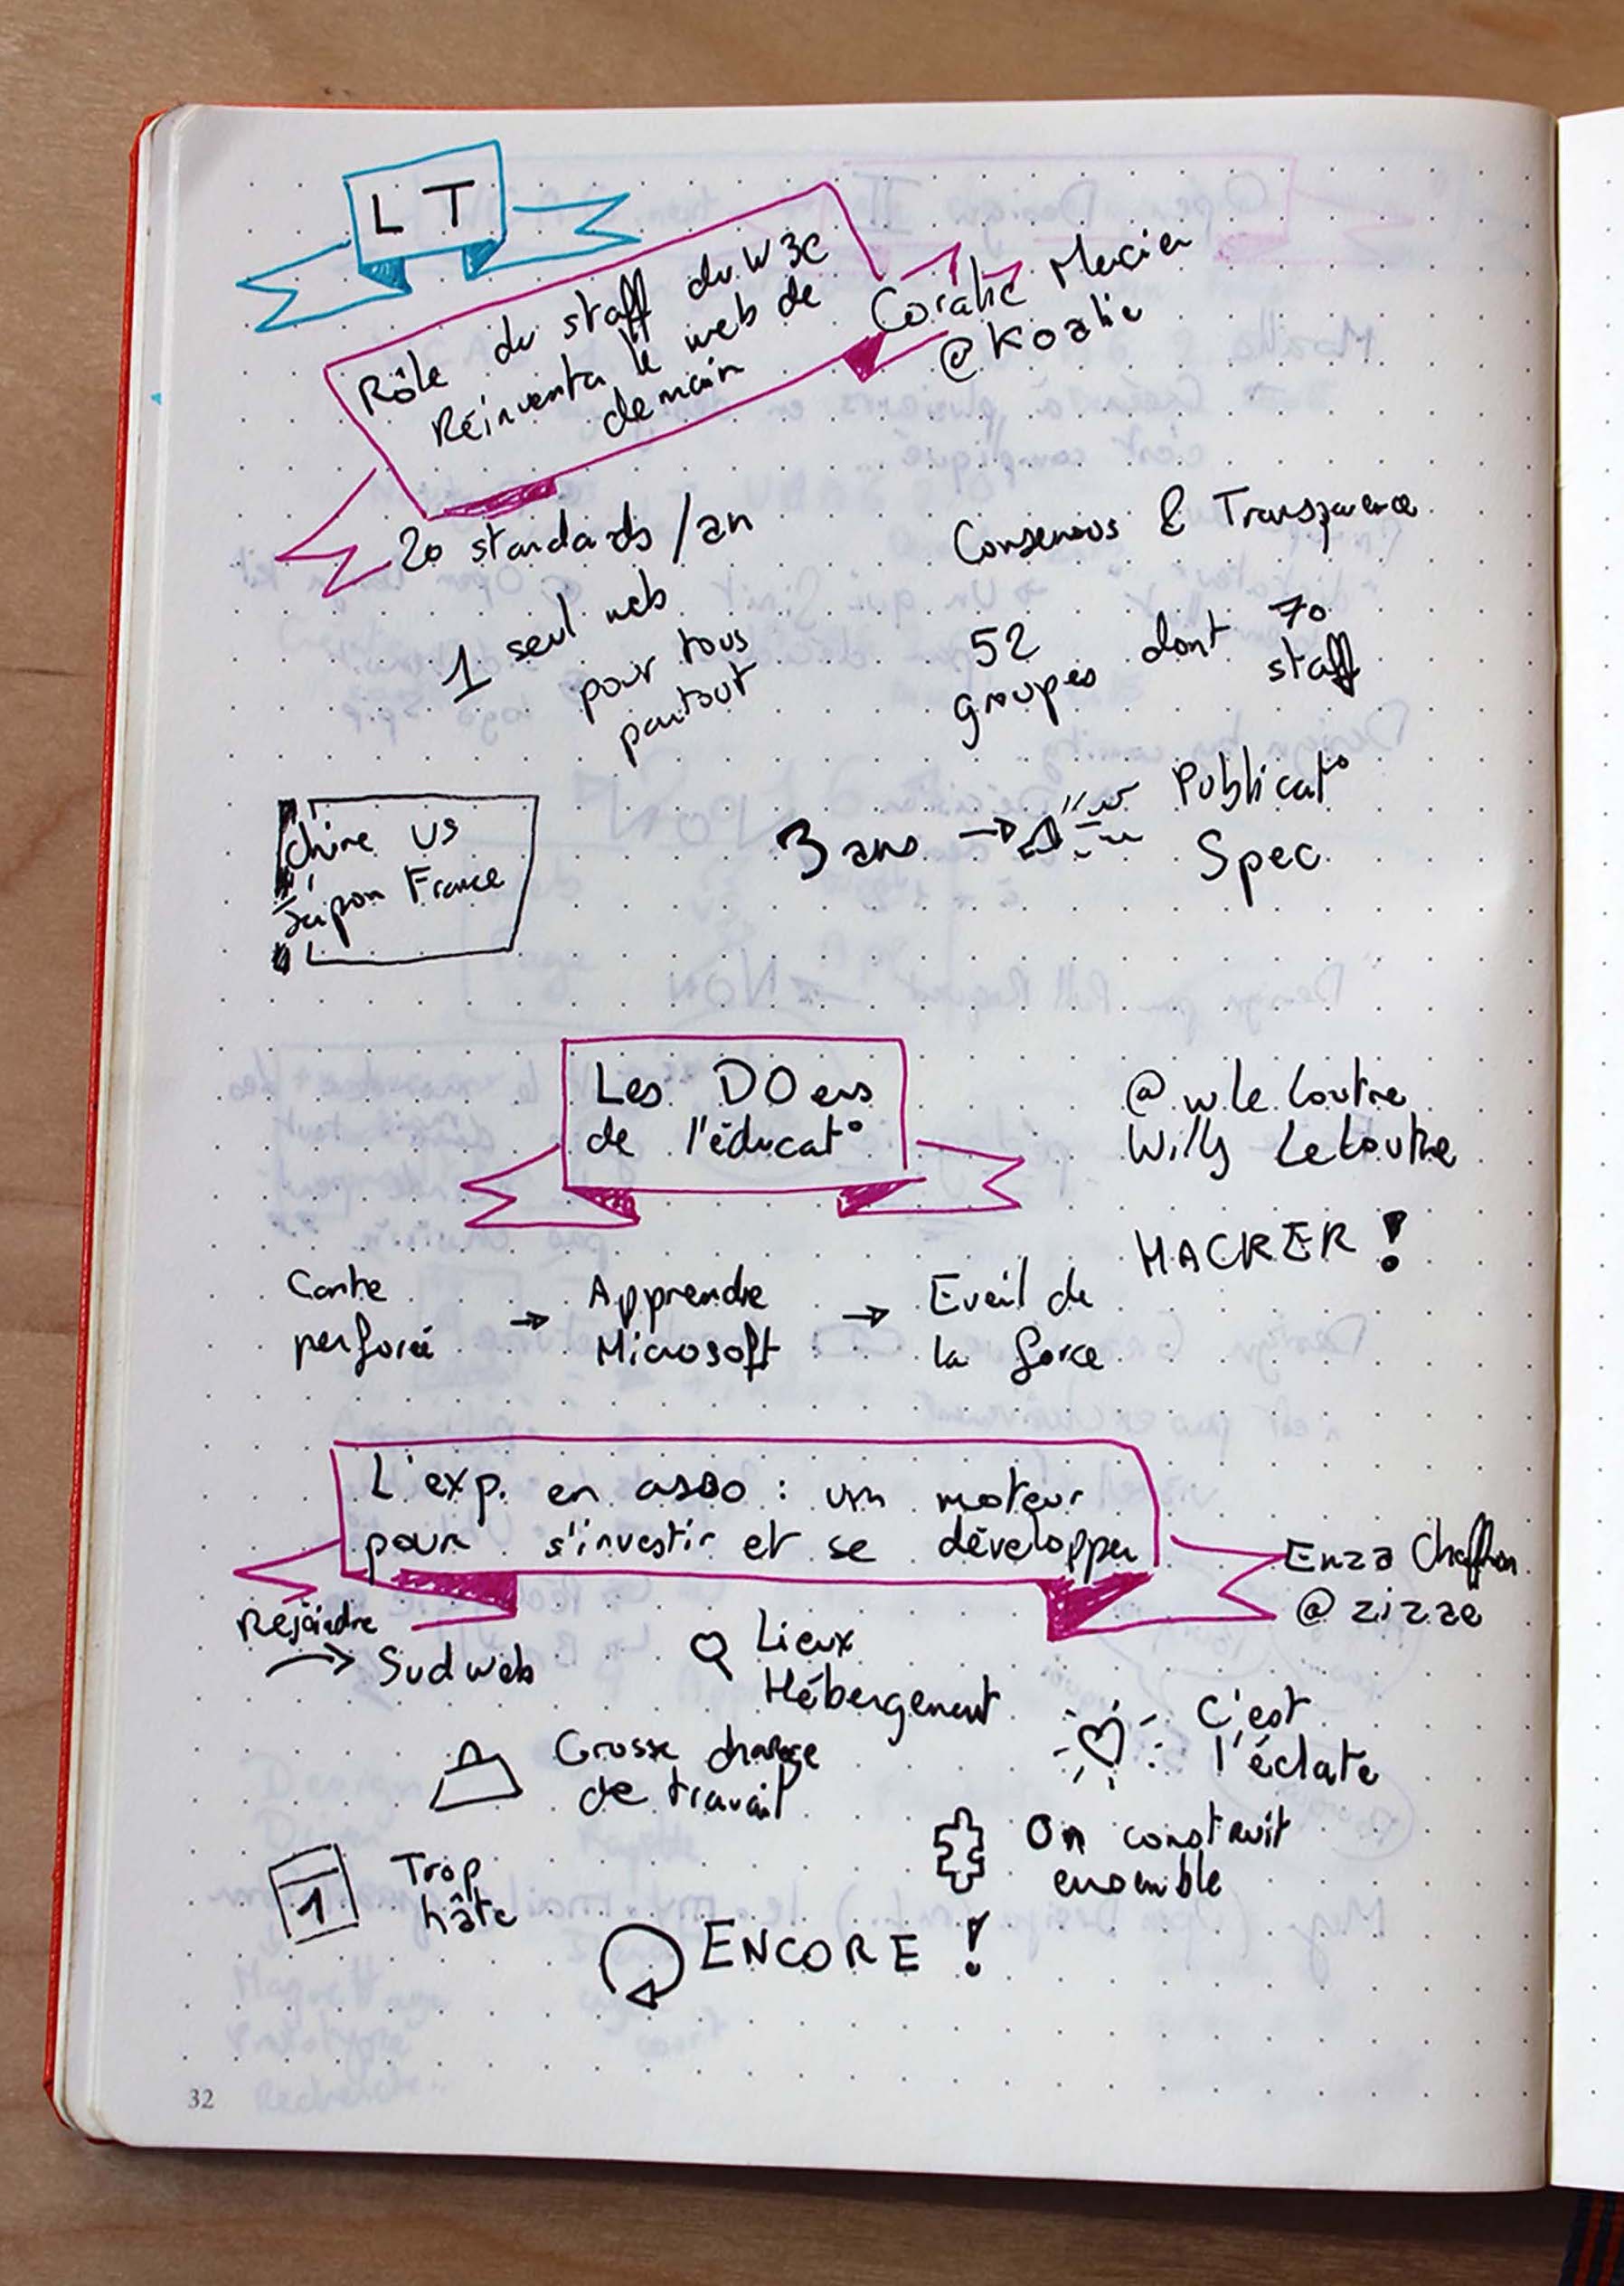 LT
Rôle du staff du W3C
Réinventer le web de
demain
Coralie Mercier
@Koalie
20 standards/an
Consensus & Transparence
1 seul web
pour tous
partout
52
groupes dont 70
staff
Chine US
Japon France
3 ans → Publicat°
Spec
Les DOers
de l'éducat°
@wleloutre
Willy Leloutre
HACKER !
Carte
perforée
→ Apprendre
Microsoft
→ Eveil de
la force
L'exp. en asso : un moteur
pour s'investir et se développer
Enza Chaffron
@zizze
Rejoindre
→ Sudweb
Lieux
Hébergement
Grosse charge
de travail
C'est
l'éclate
1
Trop
hâte
On construit
ensemble
ENCORE !
32